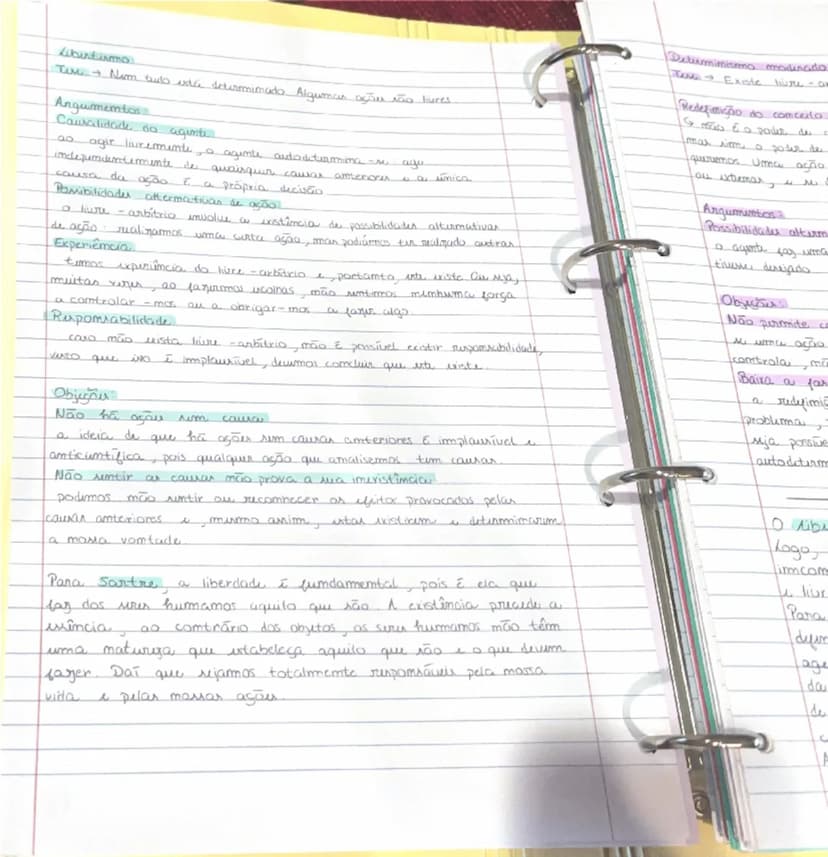 Libertismo
Tese → Nem tudo está determinado. Algumas ações são livres
Argumentos:
Causalidade do agente
ao agir livremente, o agente autodetermina-se age
independentemente de quaisquer causas anteriores e a única
causa da ação é a própria decisão
Possibilidades alternativas de ação
o livre-arbítrio involve a existência de possibilidades alternativas
de ação: realizamos uma certa ação, mas podíamos ter realizado outras
Experiência
temos experiência do livre-arbítrio e, portanto, este existe Ou seja,
muitas vezes, ao fazermos escolhas, não sentimos nenhuma força
a controlar-nos ou a obrigar-nos a fazer algo
Responsabilidade
caso não exista livre-arbítrio, não é possível existir responsabilidade,
visto que isso é implausível, devemos concluir que este existe
Objeções:
Não há ações sem causa
a ideia de que há ações sem causas anteriores é implausível e
anticientífica, pois qualquer ação que analisemos tem causas.
Não sentir as causas não prova a sua inexistência
podemos não sentir ou reconhecer os efeitos provocados pelas
causas anteriores e, mesmo assim, estas existirem e determinarem
a nossa vontade.
Para Sartre, a liberdade é fundamental, pois é ela que
faz dos seres humanos aquilo que são. A existência precede a
essência, ao contrário dos objetos, os seres humanos não têm
uma natureza que estabeleça aquilo que são e o que devem
fazer. Daí que sejamos totalmente responsáveis pela nossa
vida e pelas nossas ações.
Determinismo moderado
Tese → Existe livre-a
Redefinição do conceito
↳ não é o poder de
mas sim o poder de
queremos Uma ação
ou externas, e se
Argumentos:
Possibilidades altern
o agente faz uma
tivesse desejado
Objeções:
Não permite
se uma ação
controla, nã
Baixa a fas
a redefiniç
problema,
seja possíve
autodeterm
O libe
Logo,
incom
e livr
Para
defen
age
da
de